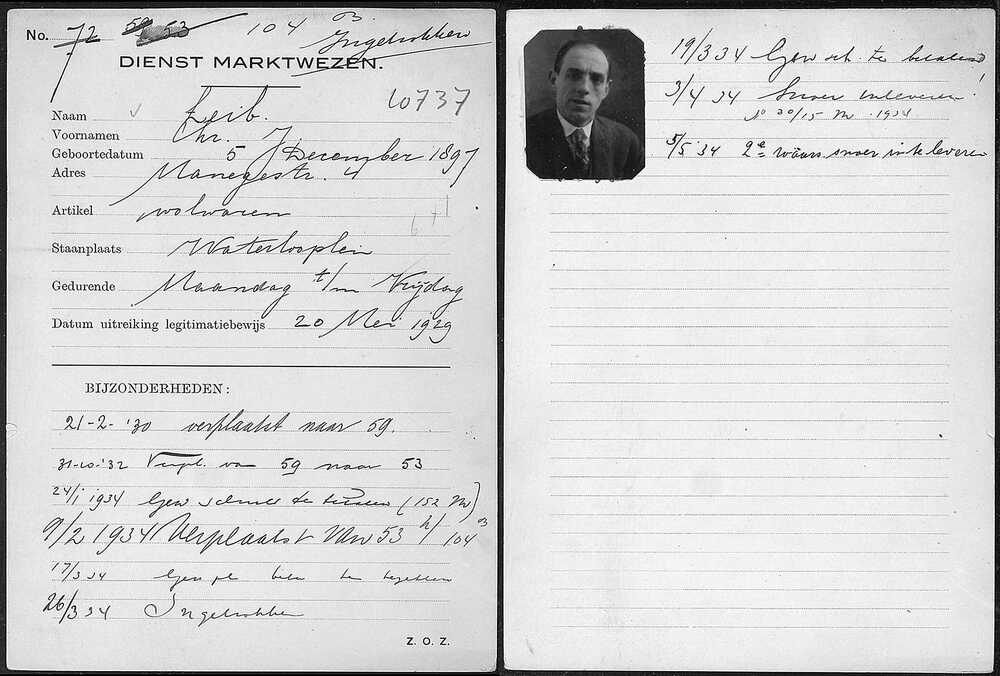 No. 72 59 53 104 B
Ingetrokken
DIENST MARKTWEZEN.
10737
Naam Leib.
Voornamen Chr. J.
Geboortedatum 5 December 1897
Adres Manegestr. 4
Artikel wolwaren
6+1
Staanplaats Waterlooplein
Gedurende Maandag t/m Vrijdag
Datum uitreiking legitimatiebewijs 20 Mei 1929
BIJZONDERHEDEN:
21-2-'30 verplaatst naar 59.
31-10-'32 Verpl. van 59 naar 53
24/1 1934 Gew te (152 M)
9/2 1934 Verplaatst van 53 n/ 104 B
17/3 34 Gew pl te
26/3 34 Ingetrokken
Z. O. Z.
19/3 34 Gew te betalen
3/4 34 Snoer inleveren!
No 30/15 M. 1934
5/5 '34 2e snoer in te leveren